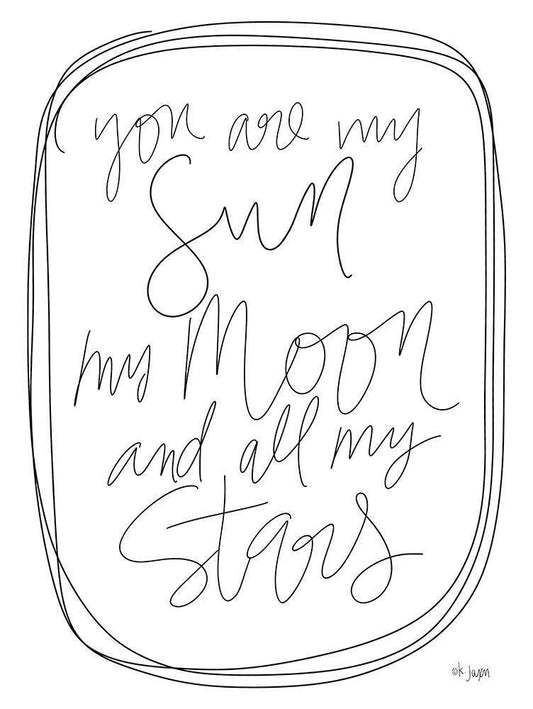 you are my
Sun
my Moon
and all my
Stars
©K Jaxn